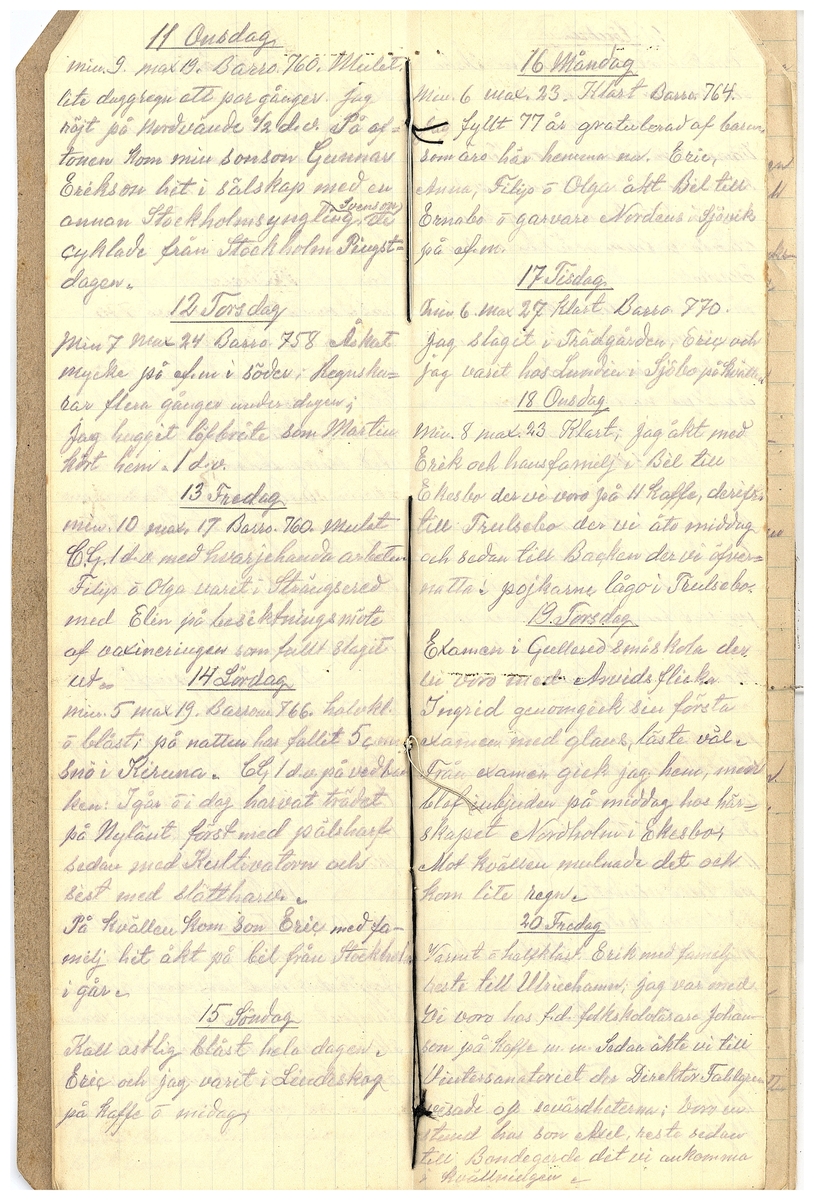 11 Onsdag
min. 9. max 19. Barro. 760. Mulet.
lite duggregn ett par gånger. jag
röjt på Nordvände 1/2 d.v. På af=
tonen kom min sonson Gunnar
Erikson hit i sälskap med en
annan Stockholmsyngling (Svenson) de
cyklade från Stockholm Pingst=
dagen.
12 Torsdag
Min 7 Max 24 Barro 758 Åskat
mycke på ef.m i söder; Regnsku=
rar flera gånger under dagen;
jag huggit löfbråte som Martin
kört hem. 1 d.v.
13 Fredag
min. 10 max. 17 Barro. 760. Mulet
C.G. 1 d.v med hvarjehanda arbeten
Filip o Olga varit i Strängsered
med Elin på besiktningsmöte
af vaxineringen som fullt slagit
ut.
14 Lördag
min. 5 max 19. Barrom. 766. halvkl.
o blåst; på natten har fallet 5 c.m
snö i Kiruna. CG 1 d.v på vedbac
ken: Igår o i dag harvat trädet
på Nylänt först med pålsharf
sedan med Kultivatorn och
sist med slättharv.
På kvällen kom son Eric med fa=
milj hit åkt på bil från Stockholm
i går.
15 Söndag
Kall ostlig blåst hela dagen.
Eric och jag varit i Lindeskog
på kaffe o midag
16 Måndag
Min. 6 max. 23. Klart Barro. 764.
Jag fyllt 77 år gratulerad af barnen
som äro här hemma nu. Eric,
Anna, Filip o Olga åkt Bil till
Ernabo o garvare Nordens i Sjövik
på ef.m.
17 Tisdag
Min 6. max 27 Klart Barro. 770.
jag slagit i Trädgården, Eric och
jag varit hos Lundin i Sjöbo på kväll
18 Onsdag
Min. 8 max. 23 Klart; jag åkt med
Erik och hans familj i Bil till
Ekesbo der vi voro på 11 kaffe, derifr.
till Trulsebo der vi åto middag
och sedan till Backen der vi öfver=
natta; pojkarne lågo i Trulsebo.
19. Torsdag
Examen i Gullered småskola der
vi voro med. Arvids flicka
Ingrid genomgick sin första
examen med glans, läste väl.
Från examen gick jag hem, men
blef inbjuden på middag hos här=
skapet Nordholm i Ekesbo,
Mot kvällen mulnade det och
kom lite regn.
20 Fredag
Varmt o halfklart. Erik med familj
reste till Ulricehamn; jag var med
Vi voro hos f.d. folkskolärare Johan
son på kaffe m. m Sedan åkte vi till
Vintersanatoriet der Direktör Fallgren
visade op sevärdheterna; voro en
stund hos son Axel, reste sedan
till Bondegerde dit vi ankomma
i kvällningen.